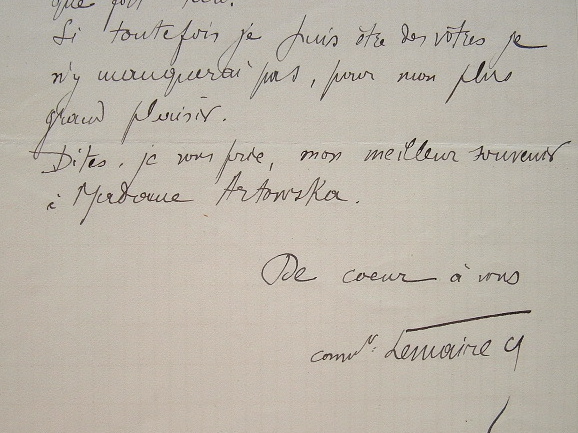 que
Si toutefois je puis être des vôtres je
n'y manquerai pas, pour mon plus
grand plaisir.
Dites, je vous prie, mon meilleur souvenir
à Madame Artowska.
De coeur à vous
Lemaire